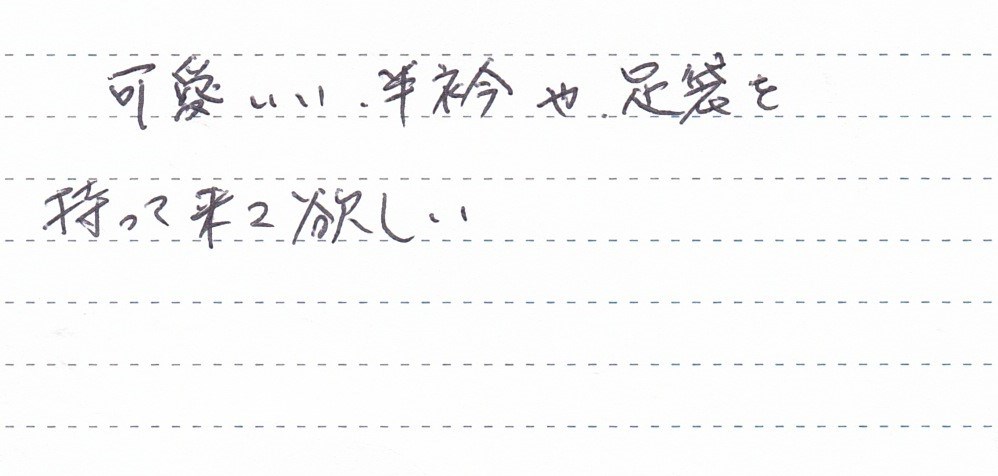 可愛いい、半衿や、足袋を
持って来て欲しい